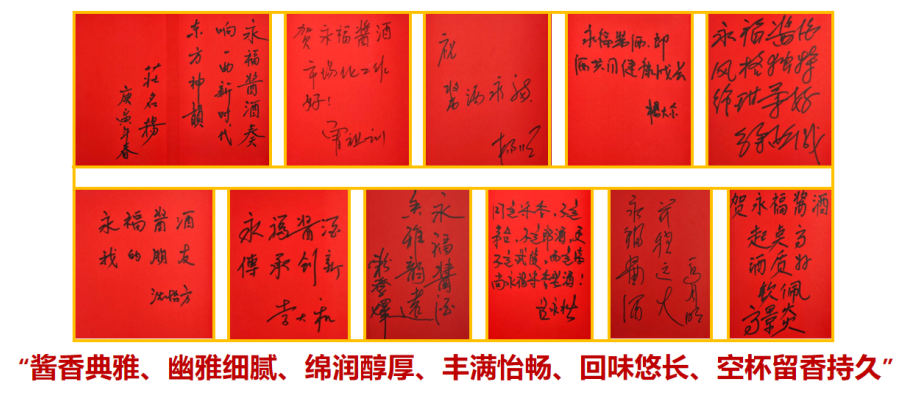 永福酱酒奏
响一曲新时代
东方神韻
莊名揚
庚寅年春
贺永福酱酒
市场化工作
好！
曾祖训
祝
酱酒永福
永福酱酒，郎
酒共同健康成长
楊大金
永福酱酒
风格独特
永福酱酒
我的朋友
沈怡方
永福酱酒
傳承创新
李大和
永福酱酒
香雅韵遠
永福酱酒
前程远大
高月明
贺永福酱酒
起点高
酒质好
钦佩
高景炎
“酱香典雅、幽雅细腻、绵润醇厚、丰满怡畅、回味悠长、空杯留香持久”